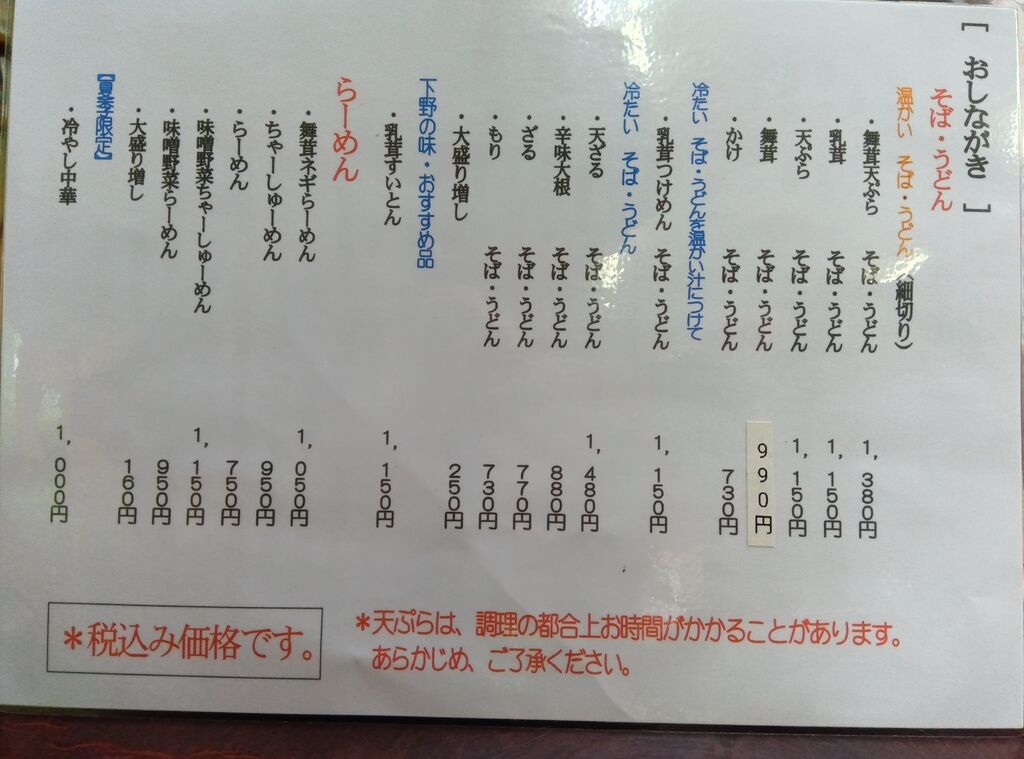 [ おしながき ]
そば・うどん
温かい そば・うどん(細切り)
・舞茸天ぷら そば・うどん 1,380円
・乳茸 そば・うどん 1,150円
・天ぷら そば・うどん 1,150円
・舞茸 そば・うどん 990円
・かけ そば・うどん 730円
冷たい そば・うどんを温かい汁につけて
・乳茸つけめん そば・うどん 1,150円
冷たい そば・うどん
・天ざる そば・うどん 1,480円
・辛味大根 そば・うどん 880円
・ざる そば・うどん 770円
・もり そば・うどん 730円
・大盛り増し 250円
下野の味・おすすめ品
・乳茸すいとん 1,150円
らーめん
・舞茸ネギらーめん 1,050円
・ちゃーしゅーめん 950円
・らーめん 750円
・味噌野菜ちゃーしゅーめん 1,150円
・味噌野菜らーめん 950円
・大盛り増し 160円
【夏季限定】
・冷やし中華 1,000円
*天ぷらは、調理の都合上お時間がかかることがあります。
あらかじめ、ご了承ください。
*税込み価格です。